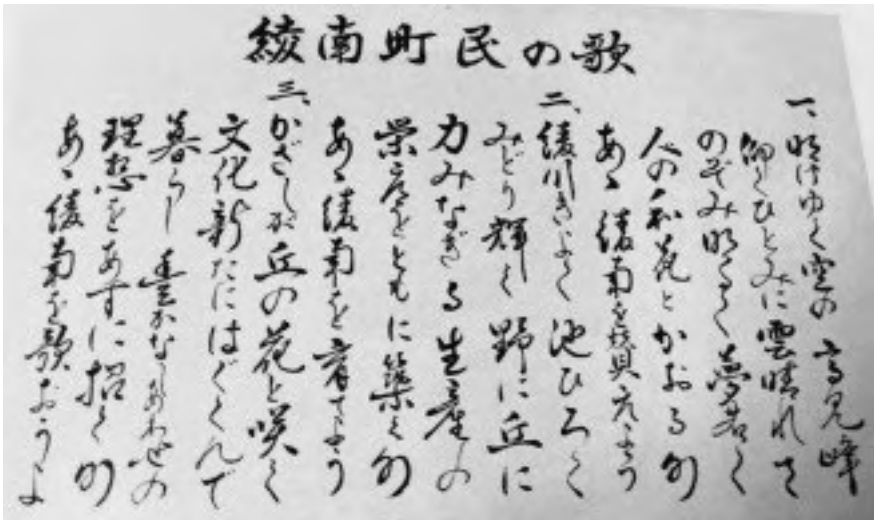 綾南町民の歌
一、明けゆく空の 高見峰
仰ぐひとみに 雲晴れて
のぞみ明るく 夢若く
人の和花と かおる町
あゝ 綾南を讃えよう
二、綾川きよく 池ひろく
みどり輝く 野に丘に
力みなぎる 生産の
栄えをともに 築く町
あゝ 綾南を育てよう
三、かざしが丘の 花と咲く
文化新たに はぐくんで
暮らし豊かな しあわせの
理想をあすに 招く町
あゝ 綾南を歌おうよ